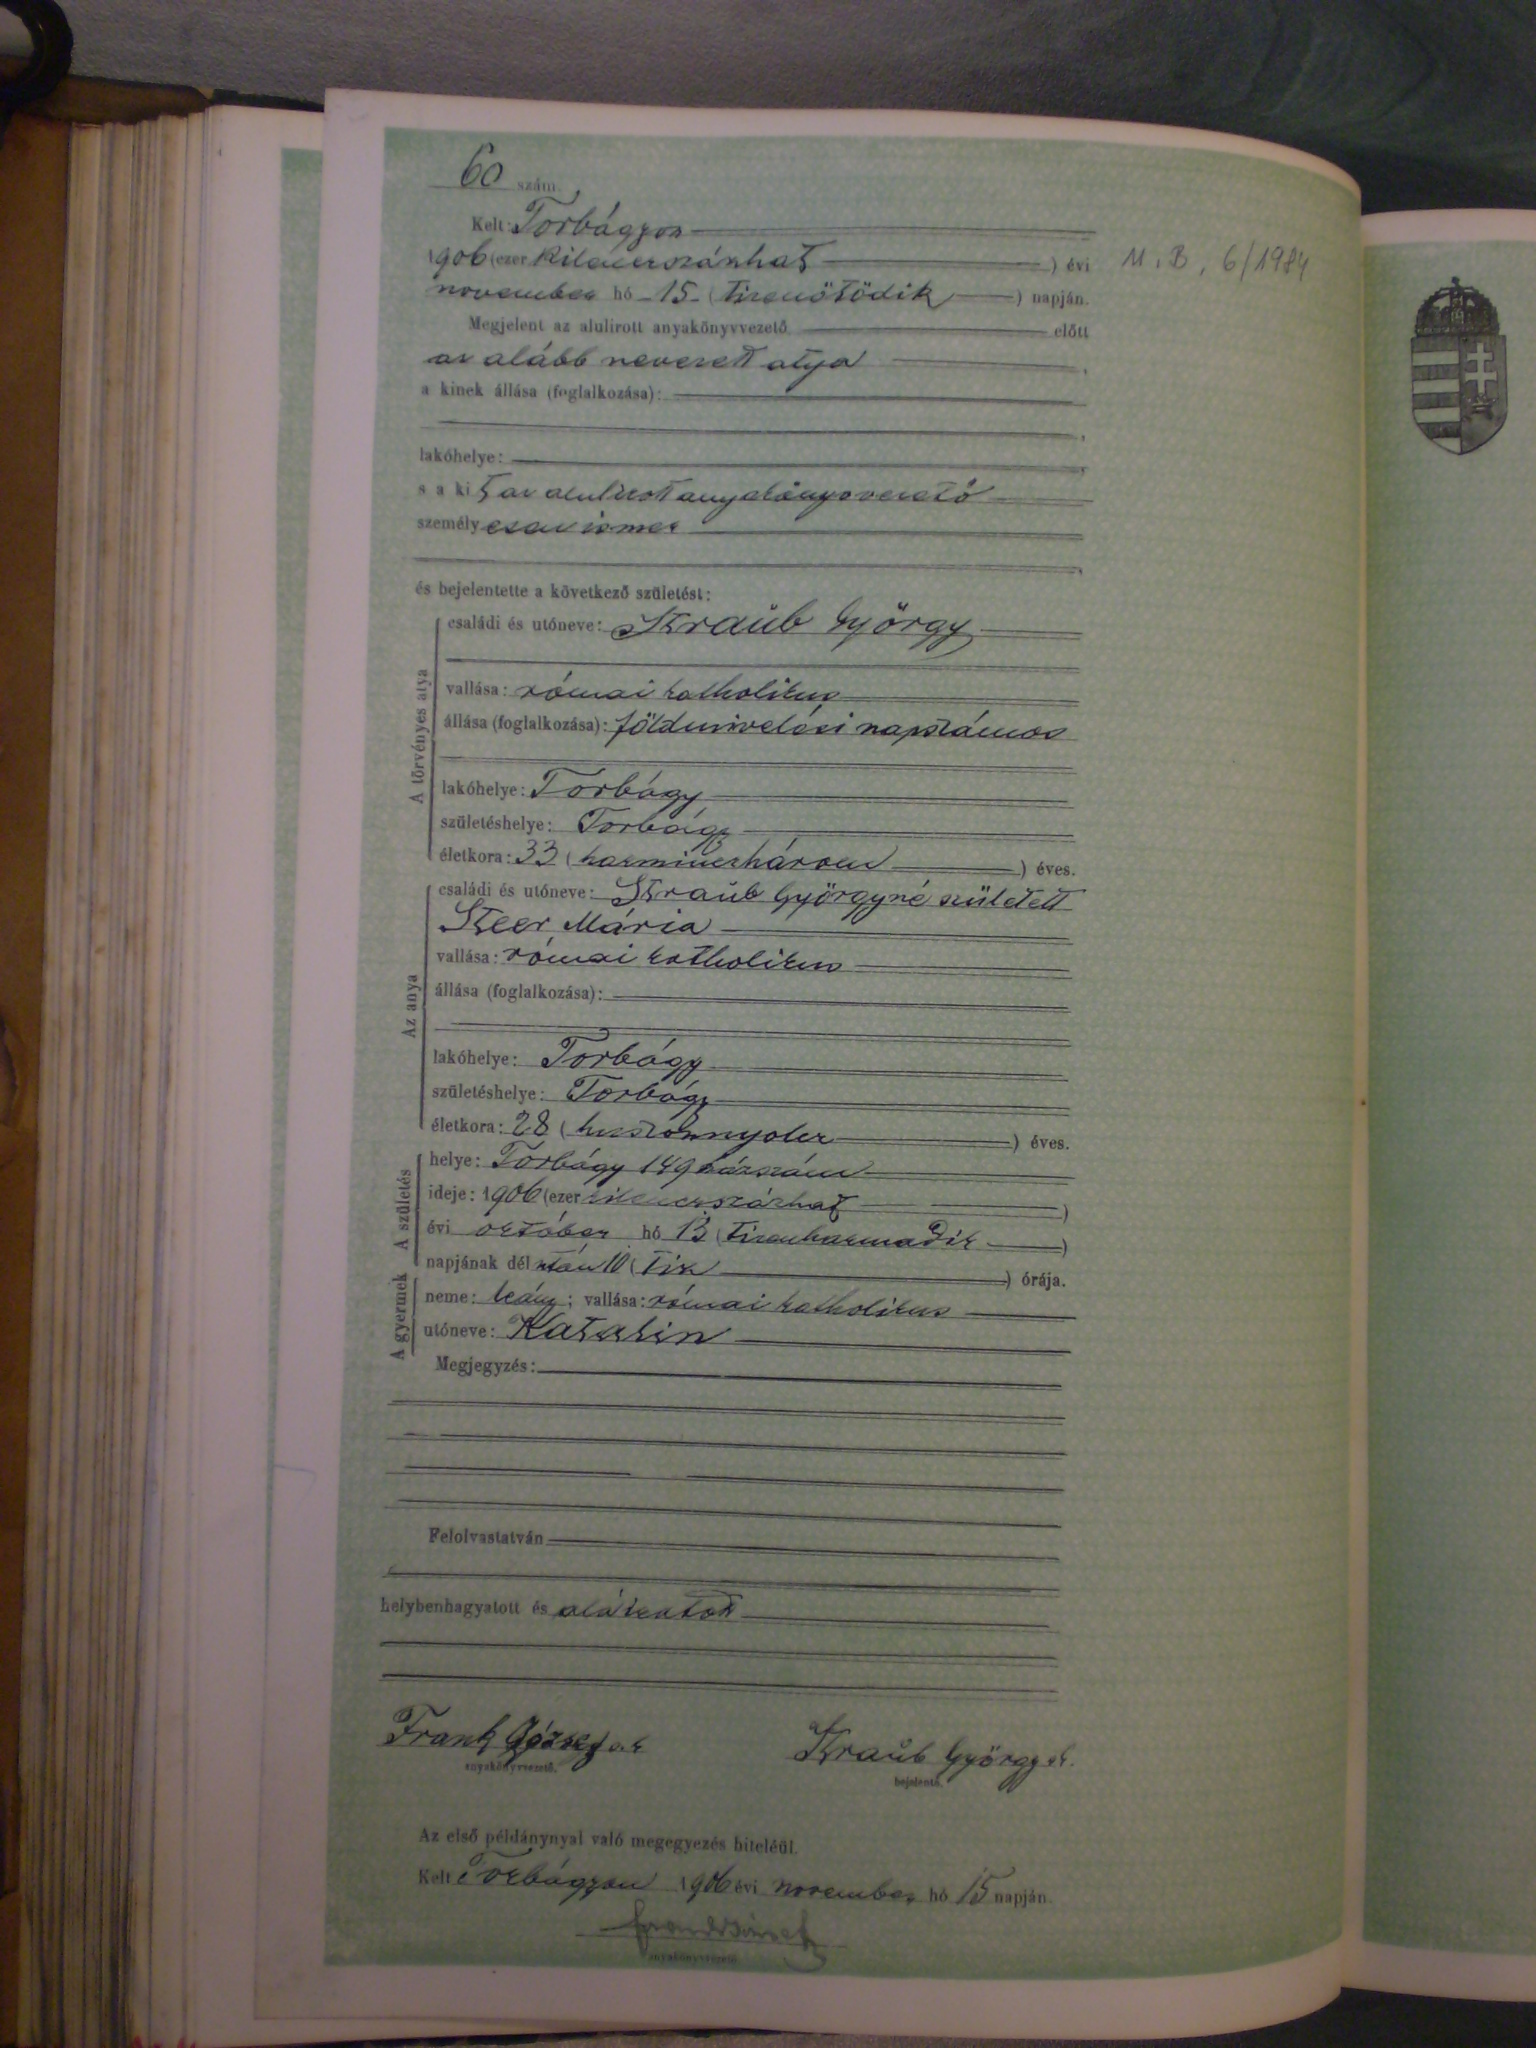 60 szám.
Kelt: Torbágyon
1906 (ezer kilenczszázhat) évi
M. B, 6/1984
november hó 15 (tizenötödik) napján.
Megjelent az alulirott anyakönyvvezető előtt
az alább nevezett atya,
a kinek állása (foglalkozása):
lakóhelye:
s a kit az alulirott anyakönyvvezető
személyesen ismer
és bejelentette a következő születést:
A törvényes atya
családi és utóneve: Straub György
vallása: római katholikus
állása (foglalkozása): földmivelési napszámos
lakóhelye: Torbágy
születéshelye: Torbágy
életkora: 33 (harminczhárom) éves.
Az anya
családi és utóneve: Straub Györgyné született
Steer Mária
vallása: római katholikus
állása (foglalkozása):
lakóhelye: Torbágy
születéshelye: Torbágy
életkora: 28 (huszonnyolcz) éves.
A születés
helye: Torbágy 149 házszám
ideje: 1906 (ezer kilenczszázhat)
évi október hó 13 (tizenharmadik)
napjának dél után 10 (tiz) órája.
A gyermek
neme: leány; vallása: római katholikus
utóneve: Katalin
Megjegyzés:
Felolvastatván
helybenhagyatott és aláiratott
Frank József s.k. Straub György s.k.
anyakönyvvezető. bejelentő.
Az első példánynyal való megegyezés hiteléül.
Kelt Torbágyon 1906 évi november hó 15 napján.
anyakönyvvezető